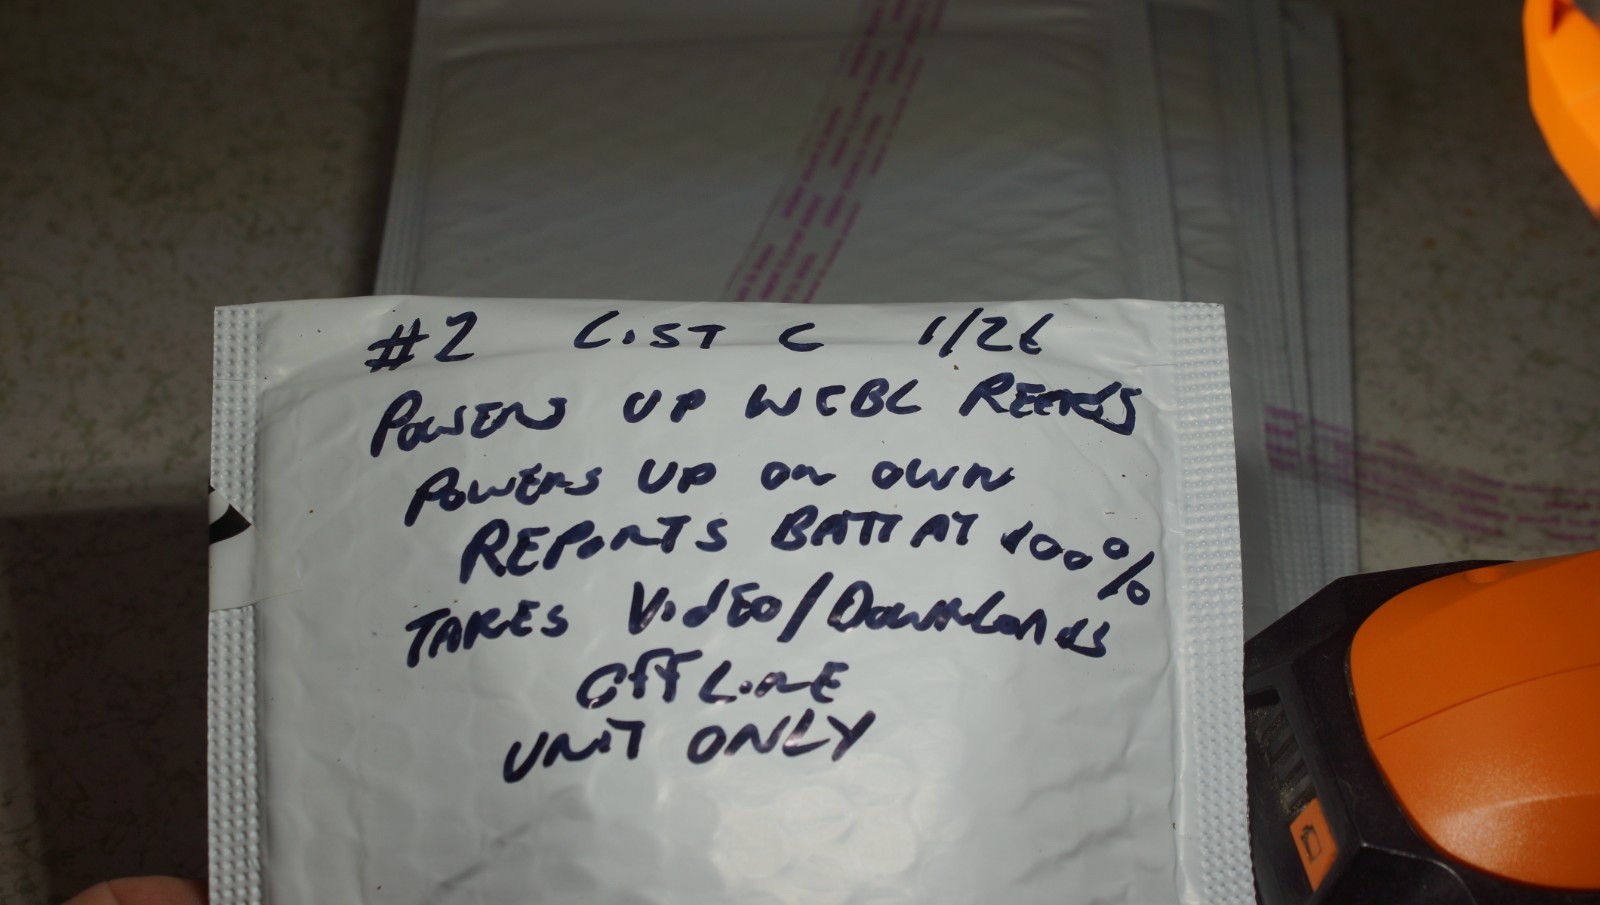 #2 LIST C 1/26
POWERS UP WEBL
POWERS UP ON OWN
REPORTS BATT AT 100%
TAKES VIDEO/DOWNLOADS
OFFLINE
UNIT ONLY